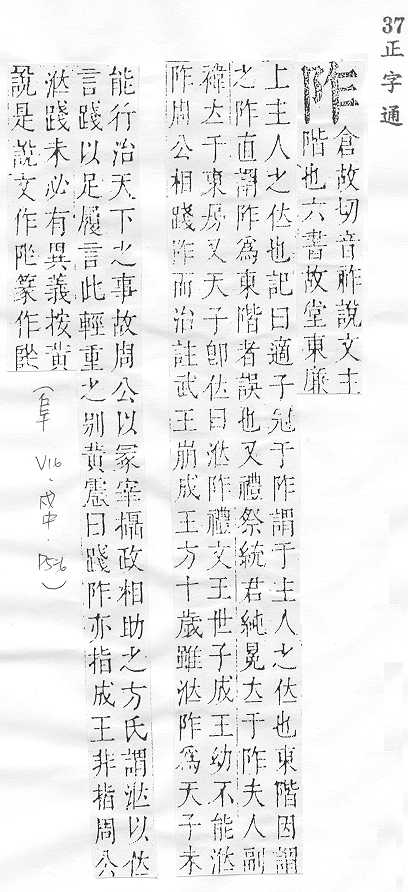 37正字通
阼
倉故切音祚說文主
階也六書故堂東廉
上主人之位也記曰適子冠于阼謂于主人之位也東階因謂
之阼直謂阼爲東階者誤也又禮祭統君純冕立于阼夫人副
褘立于東房又天子卽位曰涖阼禮文王世子成王幼不能涖
阼周公相踐阼而治註武王崩成王方十歲雖涖阼爲天子未
能行治天下之事故周公以冢宰攝政相助之方氏謂涖以位
言踐以足履言此輕重之別黃震曰踐阼亦指成王非指周公
涖踐未必有異義按黃
說是說文作阼篆作
(阜 V16.戌中.P5-6)